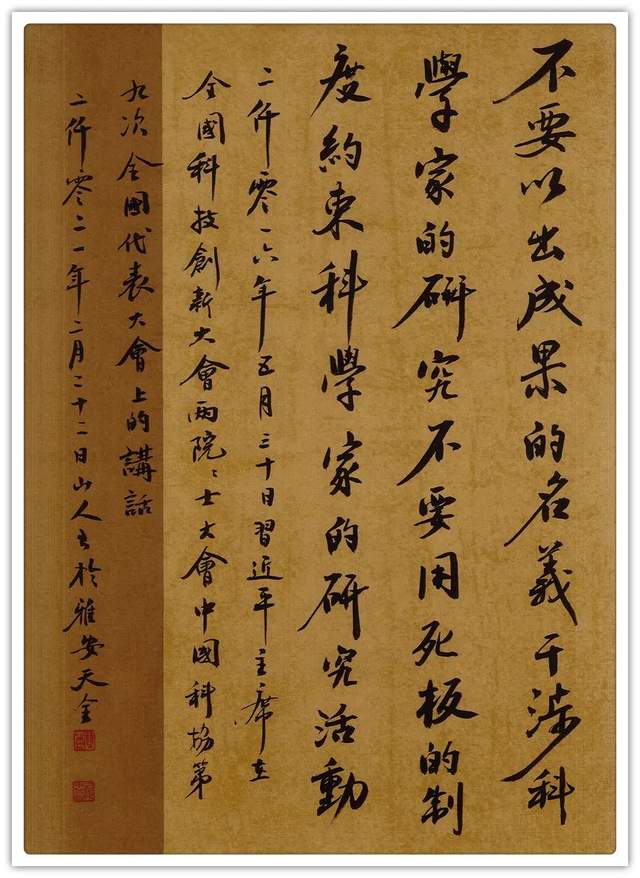 不要以出成果的名義干涉科
學家的研究不要用死板的制
度約束科學家的研究活動
二仟零一六年五月三十日習近平主席在
全國科技創新大會兩院院士大會中國科協第
九次全國代表大會上的講話
二仟零二一年二月二十二日山人書於雅安天全